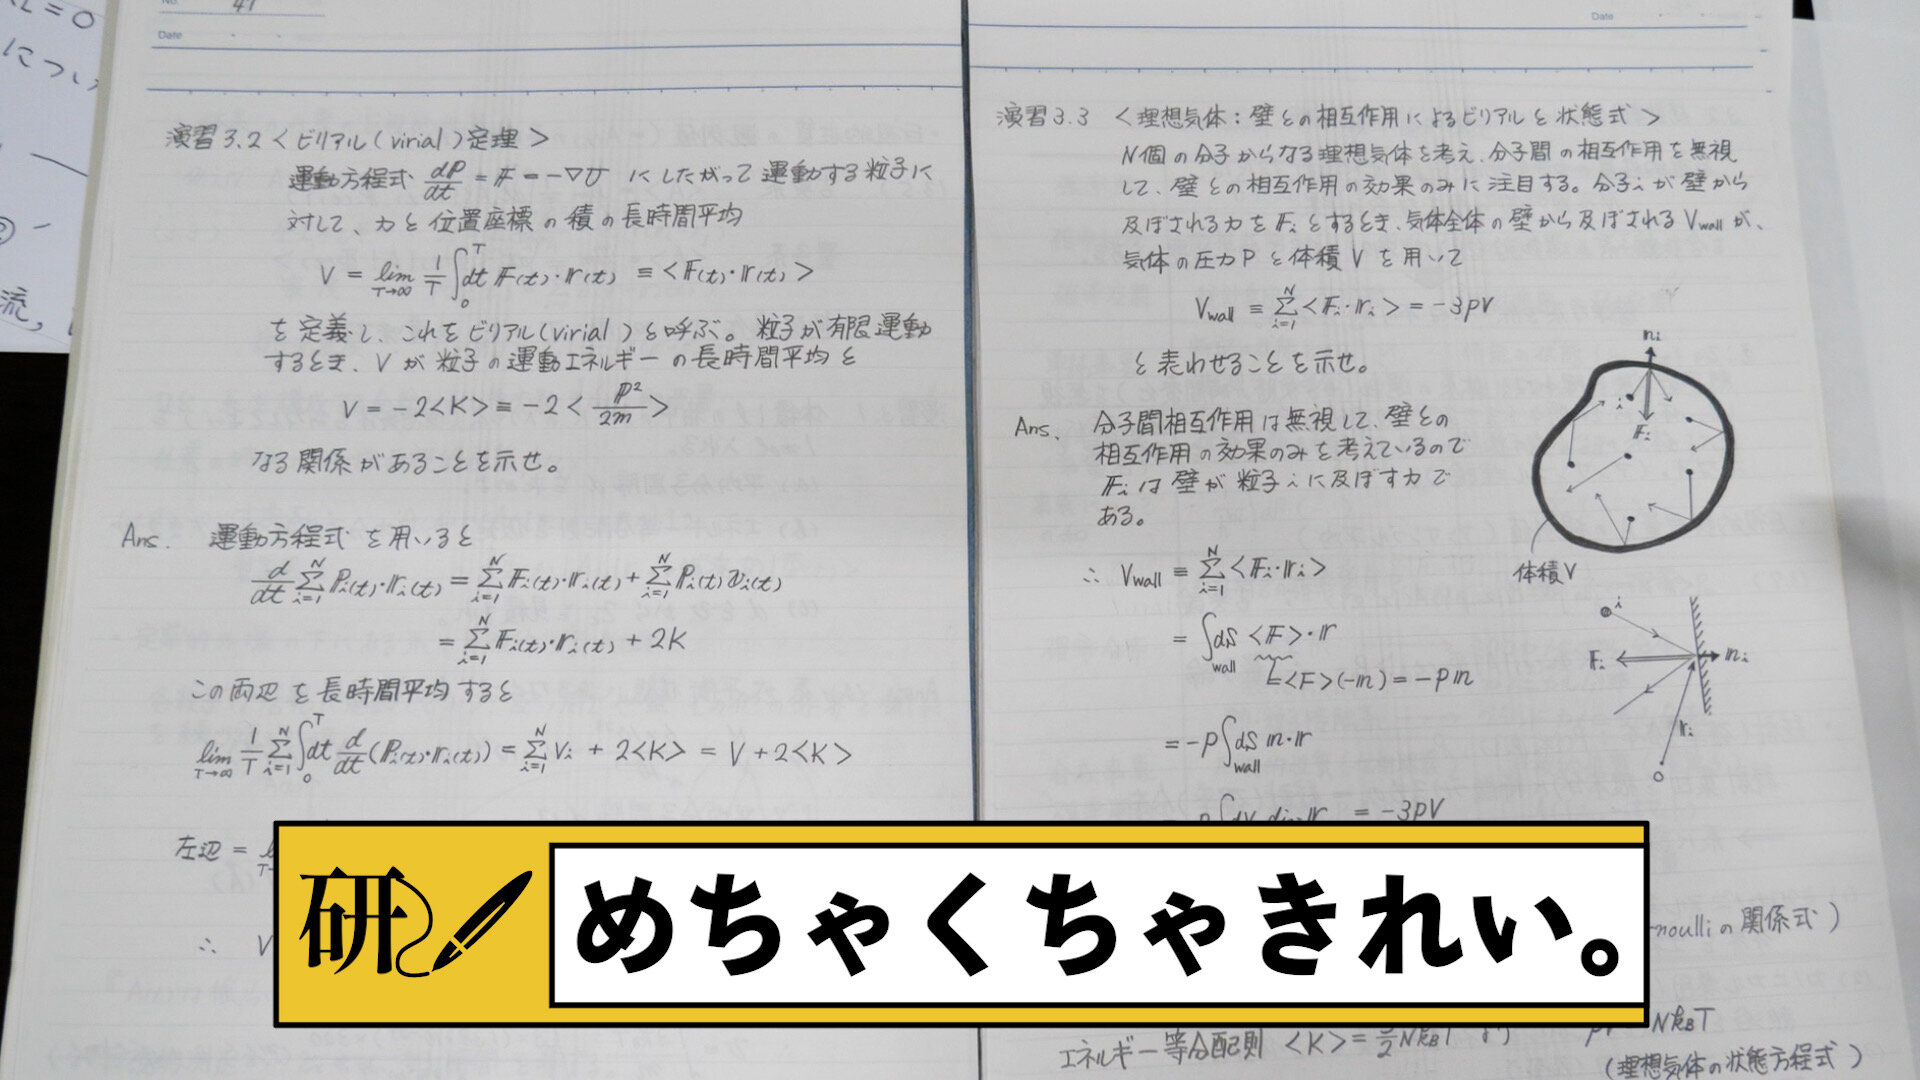 RL=0
につい
流,
No. 41
Date
演習3.2 <ビリアル(virial)定理>
運動方程式 dP/dt = F = -∇U にしたがって運動する粒子に
対して、力と位置座標の積の長時間平均
V = lim T→∞ 1/T ∫₀ᵀ dt F(t)・r(t) ≡ <F(t)・r(t)>
を定義し、これをビリアル(virial)と呼ぶ。粒子が有限運動
するとき、Vが粒子の運動エネルギーの長時間平均と
V = -2<K> ≡ -2< P²/2m >
なる関係があることを示せ。
Ans. 運動方程式を用いると
d/dt Σ_{i=1}^N Pi(t)・ri(t) = Σ_{i=1}^N Fi(t)・ri(t) + Σ_{i=1}^N Pi(t)vi(t)
= Σ_{i=1}^N Fi(t)・ri(t) + 2K
この両辺を長時間平均すると
lim T→∞ 1/T Σ_{i=1}^N ∫₀ᵀ dt d/dt (Pi(t)・ri(t)) = Σ_{i=1}^N Vi + 2<K> = V + 2<K>
左辺 =
∴ V
Date
演習3.3 <理想気体:壁との相互作用によるビリアルと状態式>
N個の分子からなる理想気体を考え、分子間の相互作用を無視
して、壁との相互作用の効果のみに注目する。分子iが壁から
及ぼされる力をFiとするとき、気体全体の壁から及ぼされるVwallが、
気体の圧力Pと体積Vを用いて
Vwall ≡ Σ_{i=1}^N <Fi・ri> = -3pV
と表わせることを示せ。
Ans. 分子間相互作用は無視して、壁との
相互作用の効果のみを考えているので
Fiは壁が粒子iに及ぼす力で
ある。
∴ Vwall ≡ Σ_{i=1}^N <Fi・ri>
= ∫wall dS <F>・r
<F>(-n) = -pn
= -p∫wall dS n・r
= -3pV
ni
i
Fi
体積V
i
Fi
ni
ri
O
noulliの関係式)
エネルギー等分配則 <K> = 3/2 NkBT より
NkBT
(理想気体の状態方程式)
研
めちゃくちゃきれい。